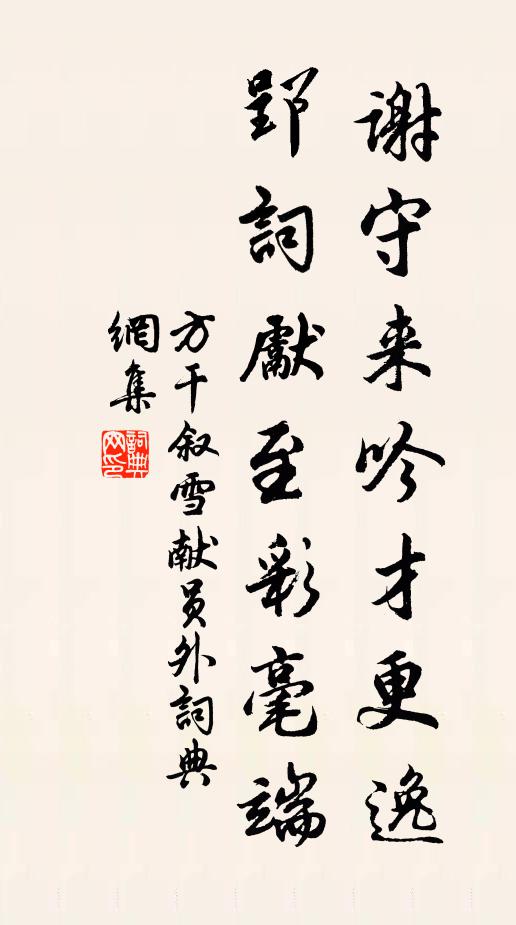 謝守来吟才更逸
郢詞獻至彩毫端
方干叙雪献员外詞典
網集
詞典網印